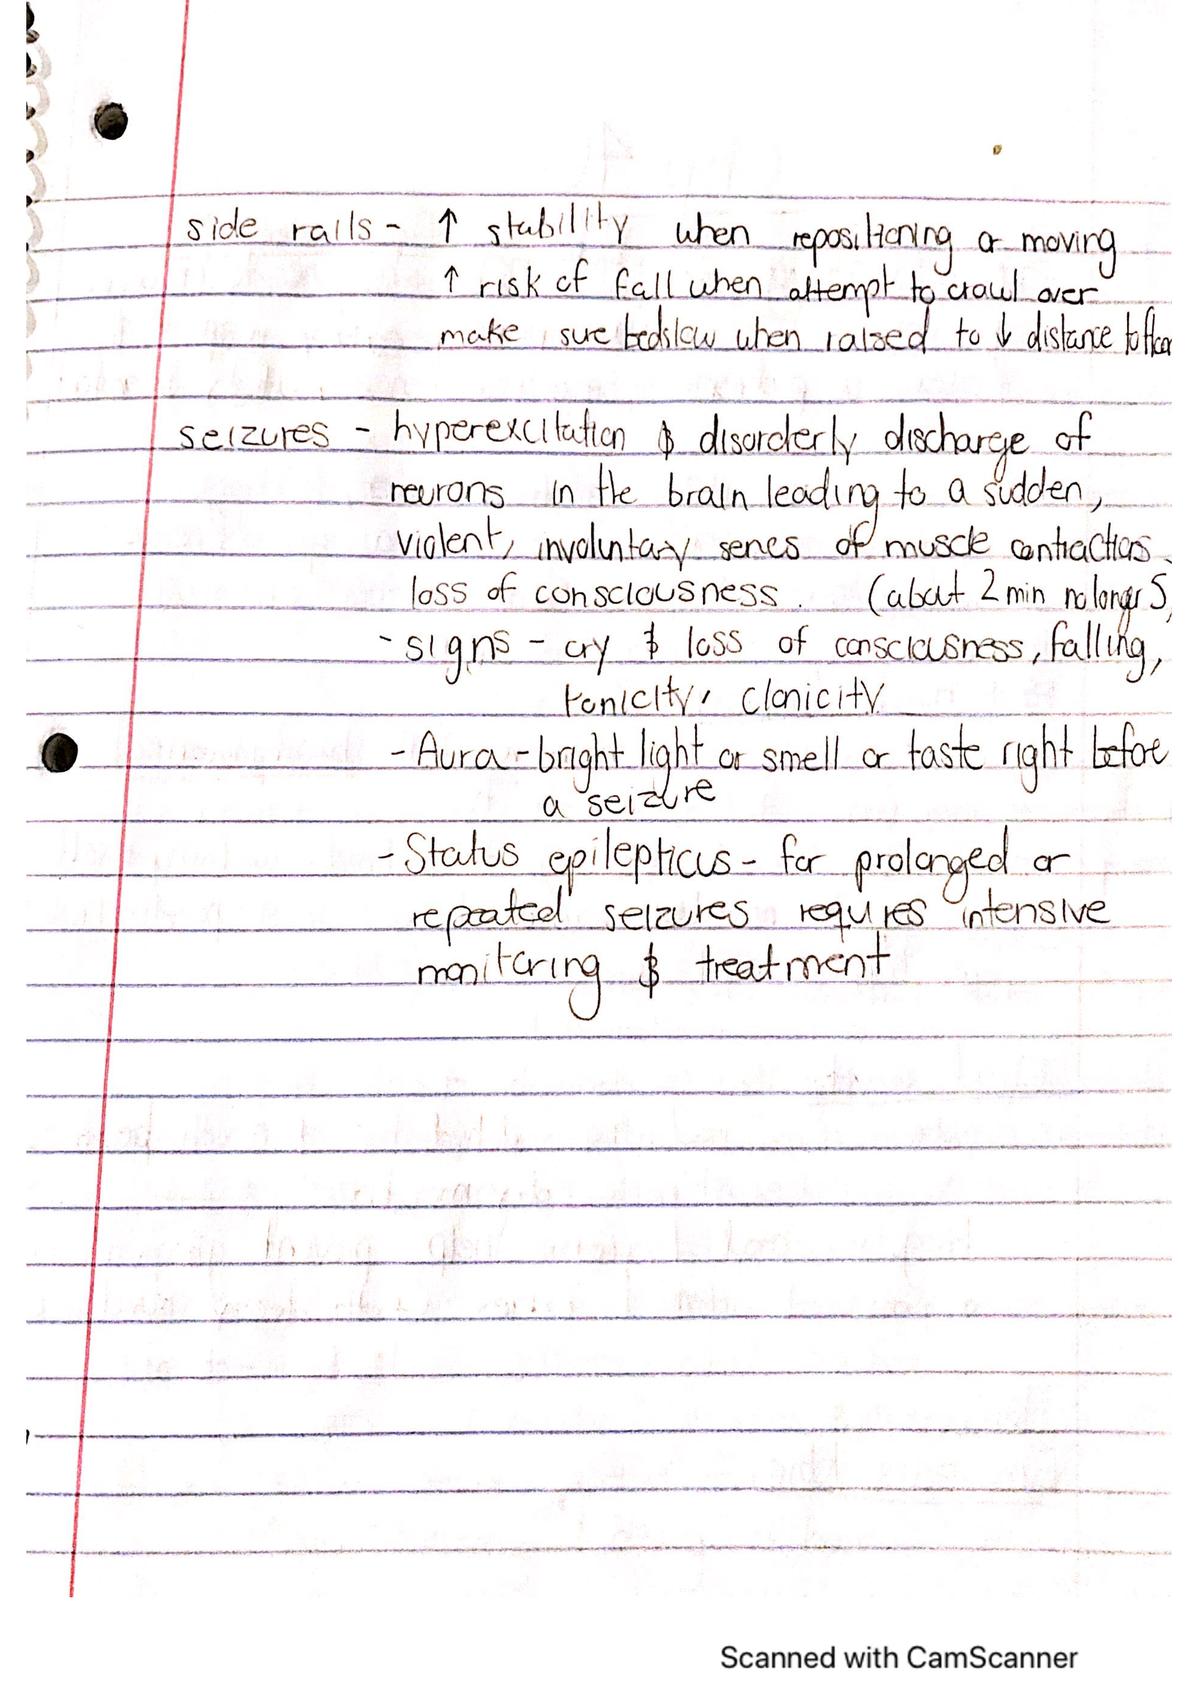 side rails - ↑ stability when repositioning or moving
↑ risk of fall when attempt to crawl over
make sure beds low when raised to ↓ distance to floor
seizures - hyperexcitation & disorderly discharge of
neurons in the brain leading to a sudden,
violent, involuntary series of muscle contractions.
loss of consciousness. (about 2 min no longer 5,
- signs - cry & loss of consciousness, falling,
tonicity, clonicity
- Aura - bright light or smell or taste right before
a seizure
- Status epilepticus - for prolonged or
repeated seizures requires intensive
monitoring & treatment
Scanned with CamScanner